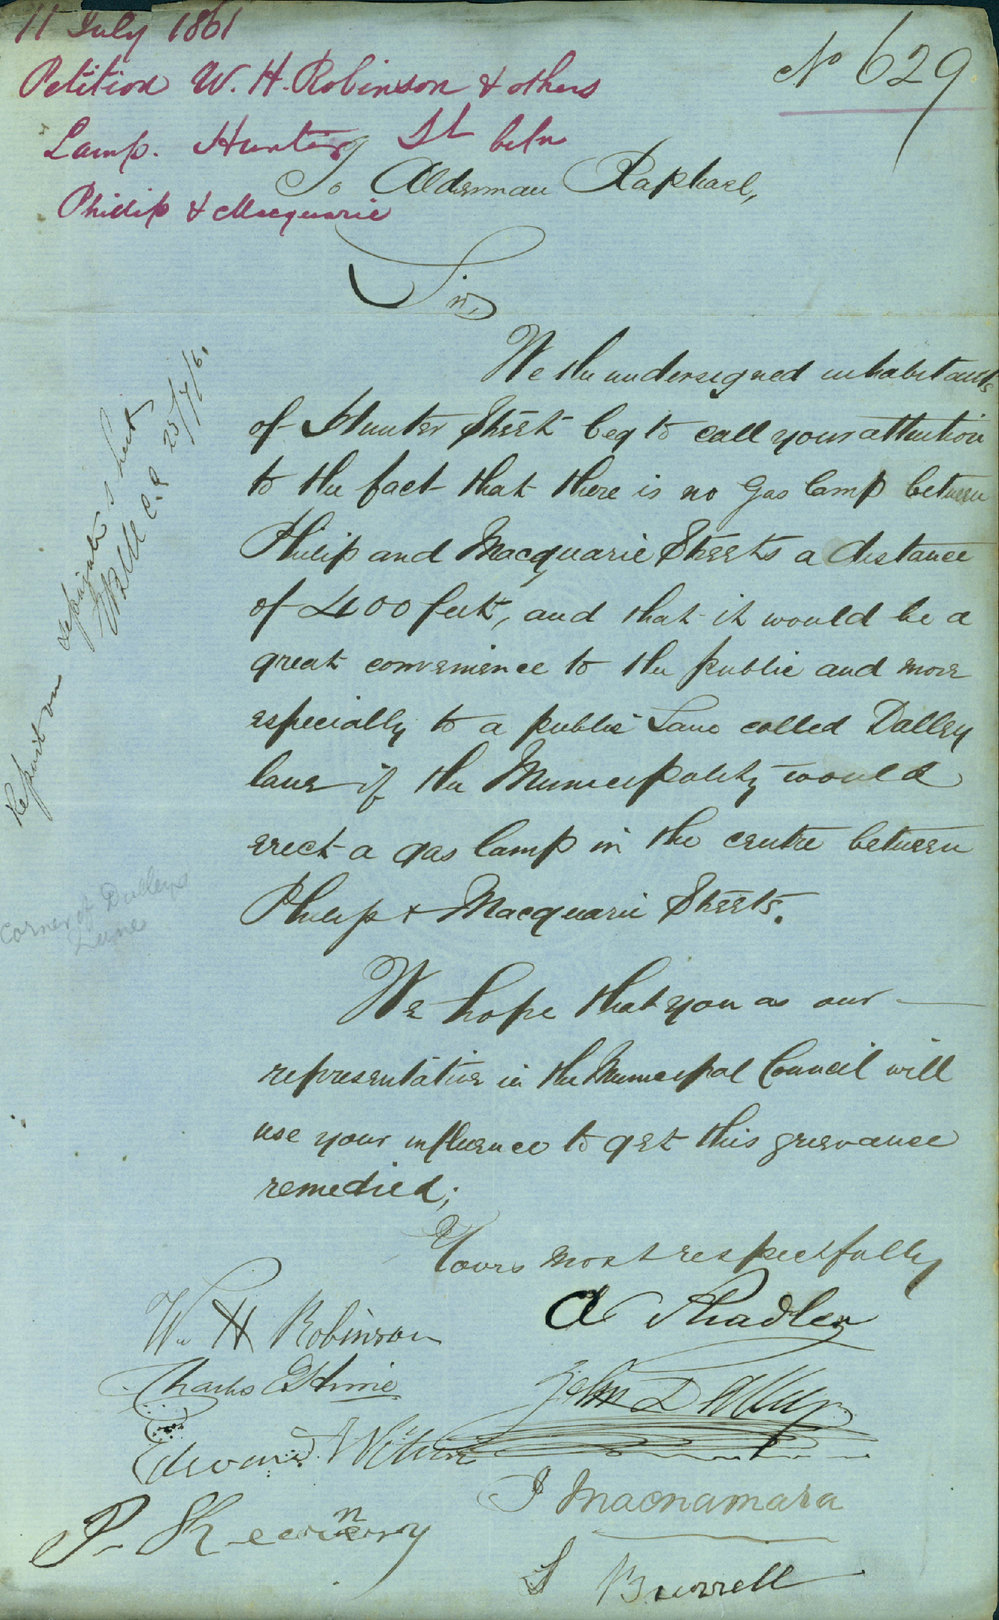 11 July 1861
Petition W. H. Robinson & others
Lamp. Hunter St betn
Phillip & Macquarie
No 629
To Alderman Raphael,
Sir,
We the undersigned inhabitants
of Hunter Street beg to call your attention
to the fact that there is no gas lamp between
Philip and Macquarie Streets a distance
of 400 feet, and that it would be a
great convenience to the public and more
especially to a public Lane called Dalley
lane if the Municipality would
erect a gas lamp in the centre between
Philip & Macquarie Streets.
We hope that you as our
representative in the Municipal Council will
use your influence to get this grievance
remedied;
Yours most respectfully
W. H Robinson
Charles
Edward
P.
A Shadler
John Dalley
J Macnamara
S Burrell
Report on
25/7/61.
corner of Dalleys
Lane